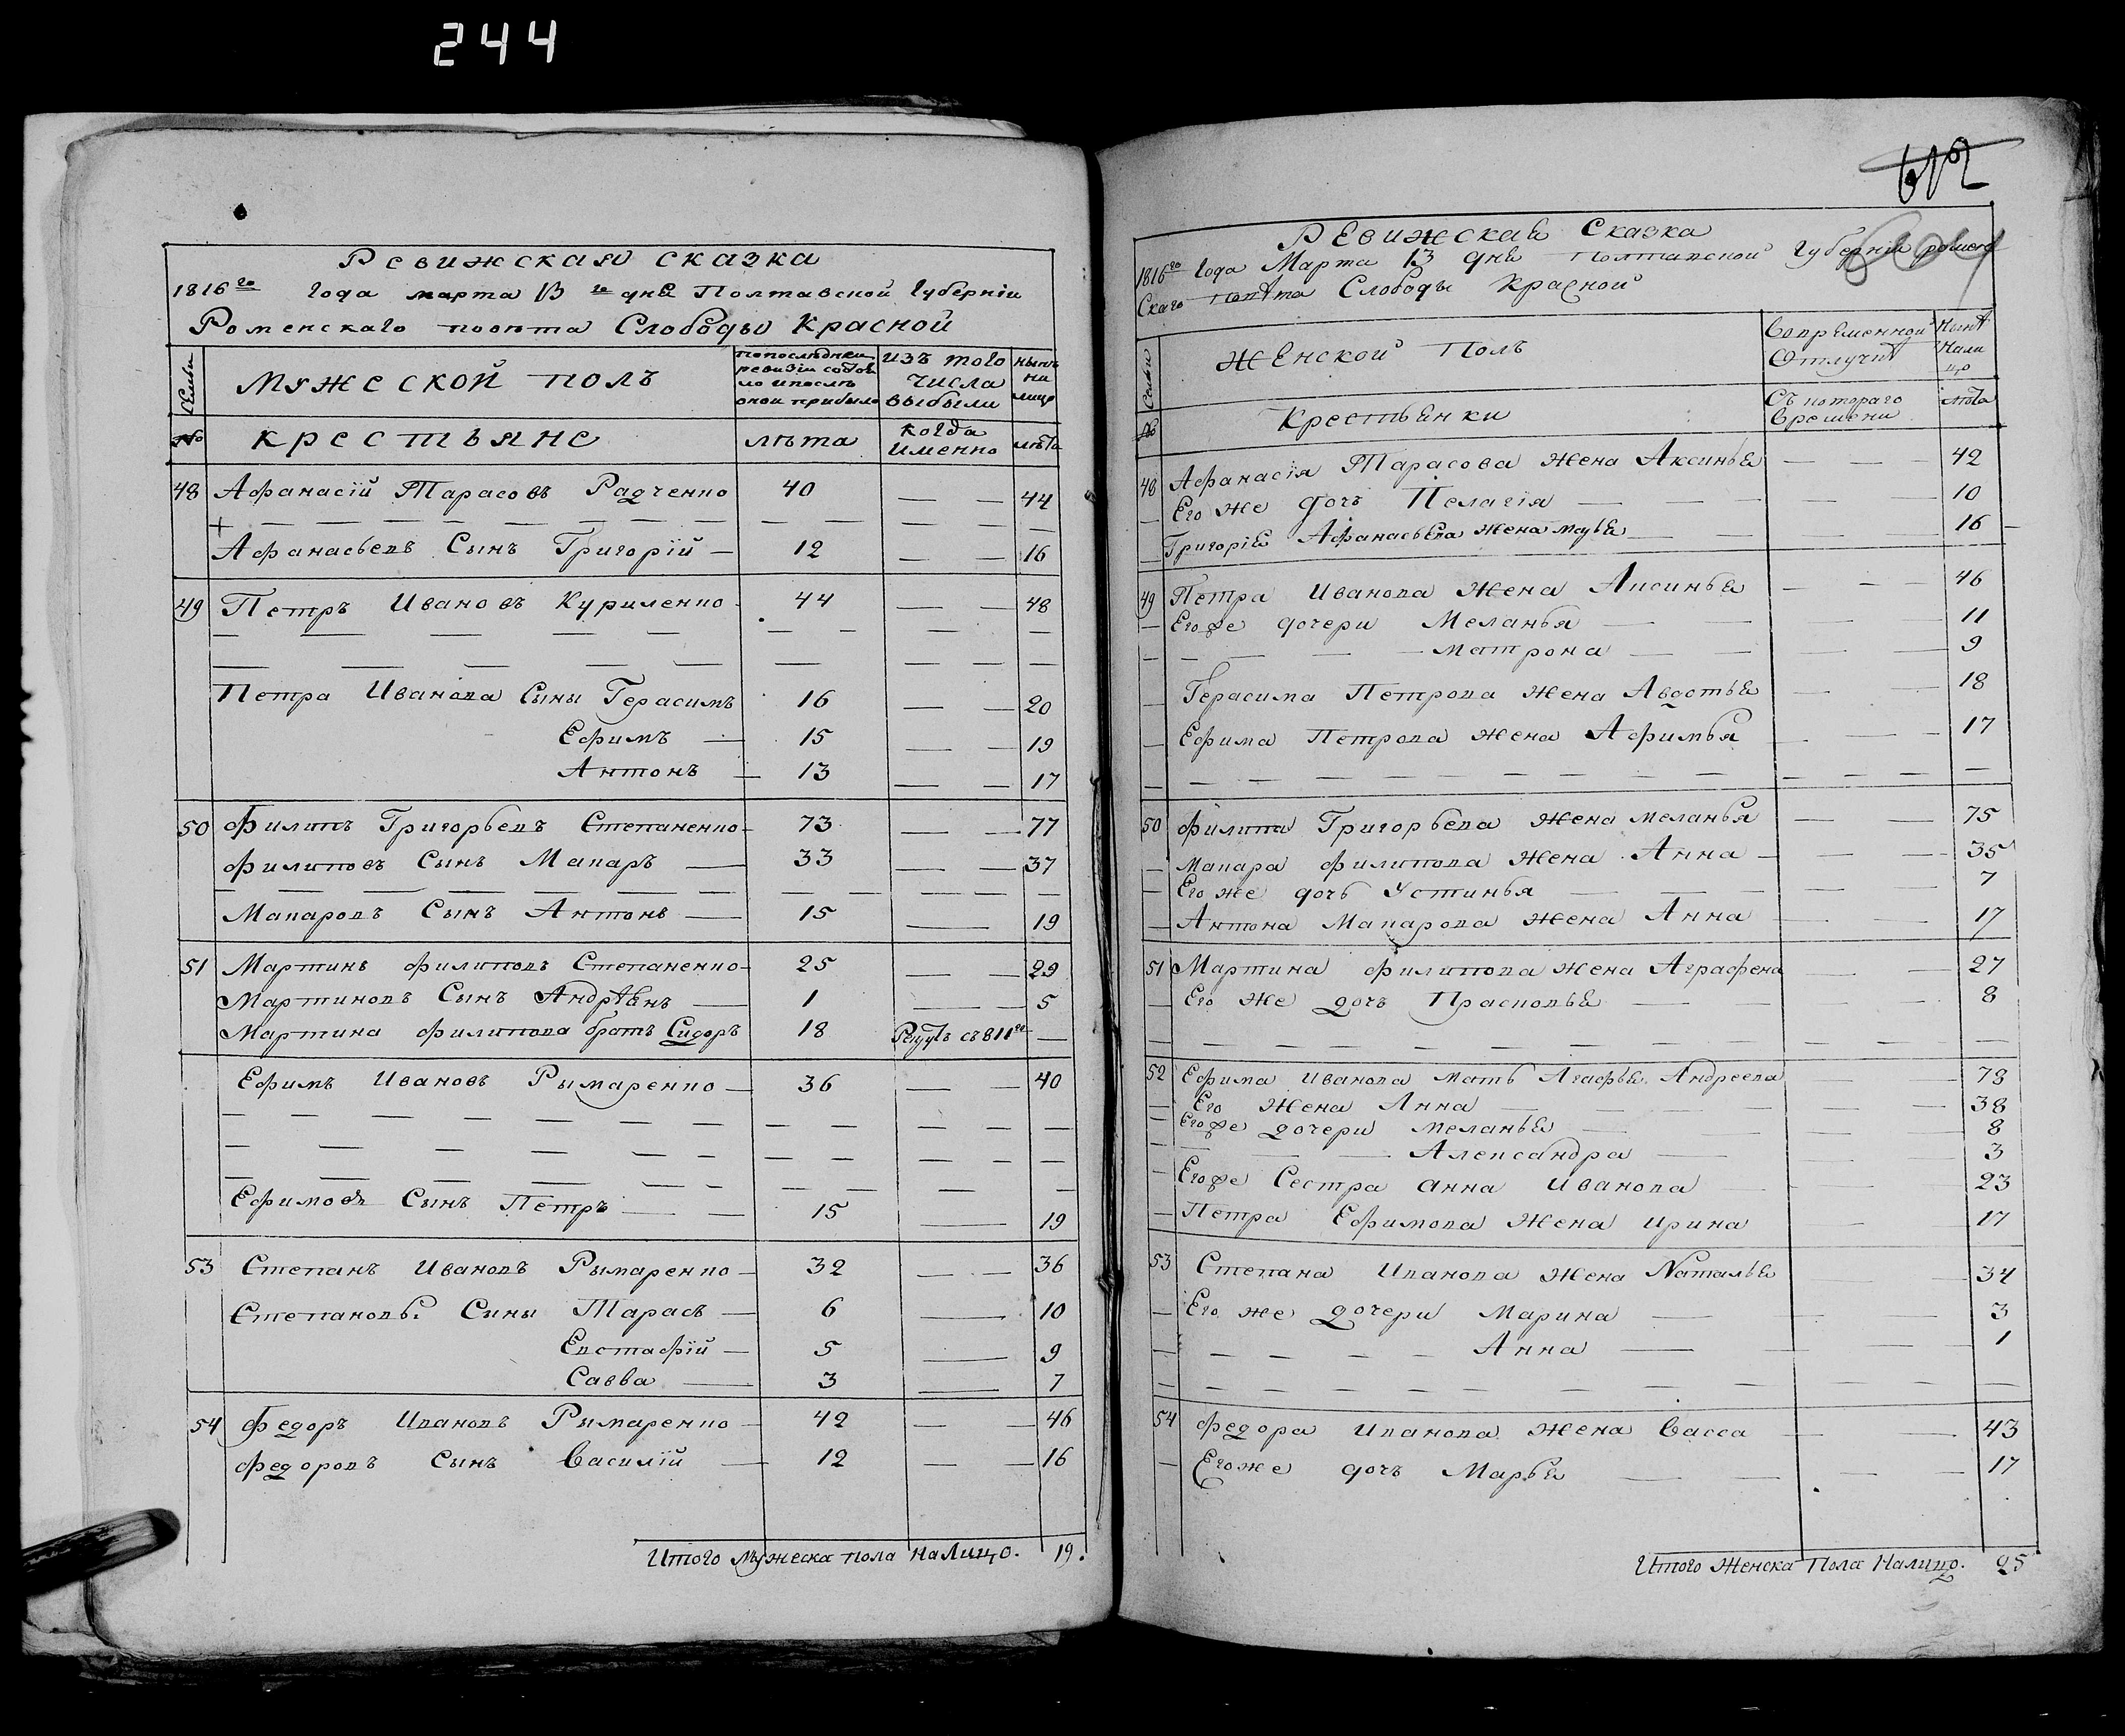 244
Ревижская сказка
1816го года марта 13го дня Полтавской Губернiи
Роменскаго повѣта Слободы Красной
Семьи
Мужеской полъ
попослѣдней
ревизiи состоя
ло ипослѣ
оной прибыло
изъ того
числа
выбыли
нынѣ
на
лицо
№
крестьяне
лѣта
когда
именно
лѣта
48 Афанасiй Тарасовъ Радченко 40 — — 44
Афанасьевъ Сынъ Григорiй — 12 — — 16
49 Петръ Ивановъ Куриленко 44 — — 48
Петра Иванова Сыны Герасимъ 16 — — 20
Ефимъ — 15 — — 19
Антонъ — 13 — — 17
50 Филипъ Григорьевъ Степаненко 73 — — 77
Филиповъ Сынъ Макаръ — 33 — — 37
Макаровъ Сынъ Антонъ — 15 — 19
51 Мартинъ Филиповъ Степаненко 25 — — 29
Мартиновъ Сынъ Андрѣянъ — 1 — — 5
Мартина Филипова братъ Сидоръ 18 съ 811го —
Ефимъ Ивановъ Рымаренко — 36 — — 40
Ефимовъ Сынъ Петръ — — 15 — 19
53 Степанъ Ивановъ Рымаренко — 32 — — 36
Степановы Сыны Тарасъ — 6 — 10
Евстафiй — 5 — 9
Савва — 3 — 7
54 Федоръ Ивановъ Рымаренко — 42 — — 46
Федоровъ Сынъ Василiй — 12 — — 16
Итого Мужеска пола наЛицо. 19.
Ревижская Сказка
1816го Года Марта 13 дня Полтавской Губернiи ромен
Скаго повѣта Слободы Красной
Семьи
женской Полъ
Вовременной
Отлучкѣ
Нынѣ
Нали
цо
№
Крестьянки
Съ котораго
времени
лѣта
48 Афанасiя Тарасова жена Аксинья — — — 42
Его же дочь Пелагiя — — — 10
Григорiя Афанасьева жена — — — 16
49 Петра Иванова жена Аксинья — — — 46
Егоже дочери Меланья — — — 11
Матрона — — — 9
Герасима Петрова жена Авдотья — — 18
Ефима Петрова жена Афимья — — 17
50 Филипа Григорьева жена меланья — — 75
Макара Филипова жена Анна — — — 35
Его же дочь Устинья — — — 7
Антона Макарова жена Анна — — 17
51 Мартина Филипова жена Аграфена — — 27
Его же дочь Прасковья — — — 8
52 Ефима Иванова мать Агафья Андреева — 78
Его жена Анна — — — 38
Егоже дочери меланья — — — 8
Александра — — — 3
Егоже Сестра анна Иванова — — 23
Петра Ефимова жена ирина — — 17
53 Степана Иванова жена Наталья — — 34
Его же дочери Марина — — — 3
Анна — — — 1
54 Федора Иванова жена Васса — — 43
Егоже дочь Марья — — — 17
Итого Женска Пола Налицо. 25